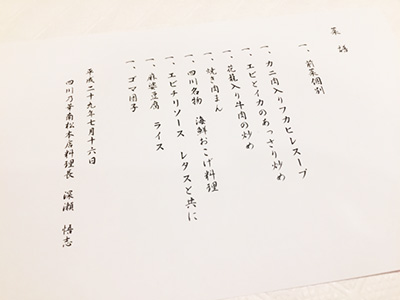 菜譜
一、前菜個割
一、カニ肉入りフカヒレスープ
一、エビとイカのあっさり炒め
一、花韮入り牛肉の炒め
一、焼き肉まん
一、四川名物 海鮮おこげ料理
一、エビチリソース レタスと共に
一、麻婆豆腐 ライス
一、ゴマ団子
平成二十九年七月十六日
四川乃華南松本店料理長 深瀬 悟志